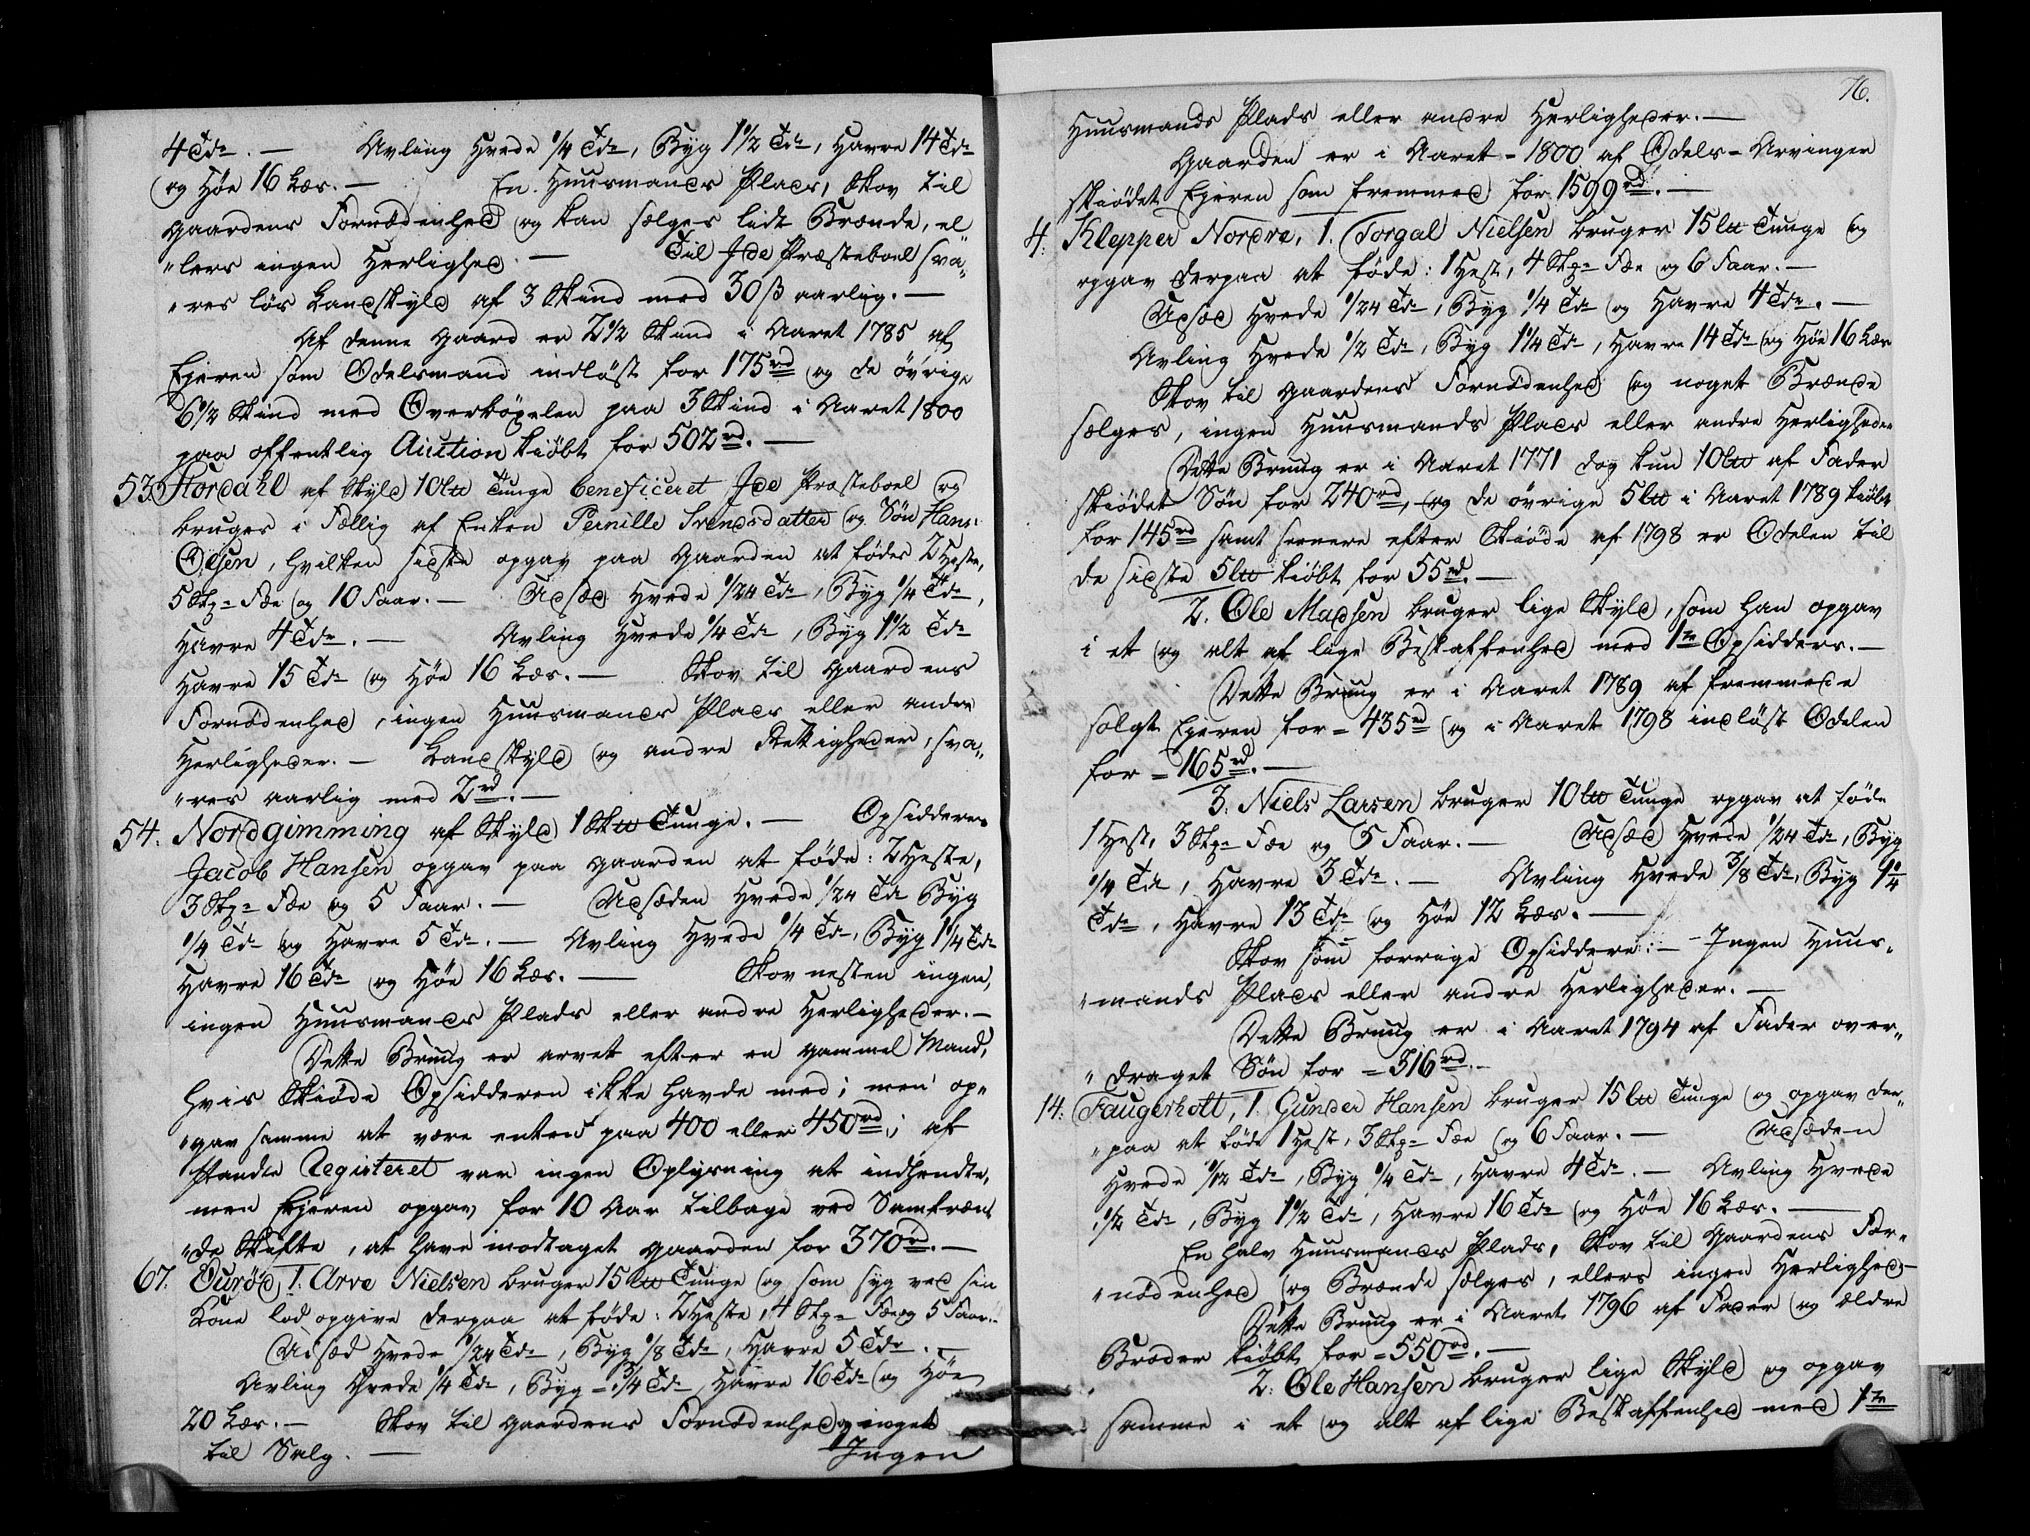 4 Tdr. — Avling Hvede 1/4 Tdr, Byg 1 1/2 Tdr, Havre 14 Tdr
og Høe 16 Læs. — En Huusmands Plads, Skov til
Gaardens Fornødenhed og kan sælges lidt Brænde, el
„lers ingen Herlighed. — Til Ide Præsteboel sva„
„res løs Landskyld af 3 Skind med 30 ß aarlig. —
Af denne Gaard er 2 1/2 Skind i Aaret 1785 af
Ejeren som Odelsmand indløst for 175 rd og de øvrige
6 1/2 Skind med Overböxelen paa 3 Skind i Aaret 1800
paa offentlig Auction kiøbt for 502 rd. —
53. Stordahl af Skyld 10 lb Tunge beneficeret Ide Præsteboel og
bruges i Fællig af Enken Pernille Svendsdatter og Søn Hans
Olsen, hvilken sidste opgav paa Gaarden at födes 2 Heste,
5 Stkr Fæ og 10 Faar. — Udsæd Hvede 1/24 Tdr, Byg 1/4 Tdr,
Havre 4 Tdr. — Avling Hvede 1/4 Tdr, Byg 1 1/2 Tdr
Havre 15 Tdr og Høe 16 Læs. — Skov til Gaardens
Fornødenhed, ingen Huusmands Plads eller andre
Herligheder. — Landskyld og andre Rettigheder, sva„
„res aarlig med 2 rd. —
54. Nordgimming af Skyld 1 Sklb Tunge. — Opsidderen
Jacob Hansen opgav paa Gaarden at føde: 2 Heste,
3 Stkr Fæ og 5 Faar. — Udsæden Hvede 1/24 Td Byg
1/4 Tdr og Havre 5 Tdr. — Avling Hvede 1/4 Tdr, Byg 1 1/4 Tdr
Havre 16 Tdr og Høe 16 Læs. — Skov nesten ingen,
ingen Huusmands Plads eller andre Herligheder. —
Dette Bruug er arvet efter en gammel Mand,
hvis Skiøde Opsidderen ikke havde med; men op„
„gav samme at være enten paa 400 eller 450 rd; af
Pante Registeret var ingen Oplysning at indhendte,
men Ejeren opgav for 10 Aar tilbage ved Samfræn
„de Skifte, at have modtaget Gaarden for 370 rd. —
67. 1. Arve Nielsen bruger 15 lb Tunge og som syg ved sin
Kone lod opgive derpaa at føde: 2 Heste, 4 Stkr Fæ og 5 Faar. —
Udsæd Hvede 1/24 Tdr, Byg 1/8 Tdr, Havre 5 Tdr. —
Avling Hvede 1/4 Tdr, Byg 3/4 Tdr Havre 16 Tdr og Høe
20 Læs. — Skov til Gaardens Fornødenhed og inget
til Salg. —
Ingen
76.
Huusmands Plads eller andre Herligheder. —
Gaarden er i Aaret 1800 af Odels-Arvinger
skiødet Ejeren som fremmed for 1599 rd. —
4. Klepper Nordre, 1. Torgal Nielsen bruger 15 lb Tunge og
opgav derpaa at føde: 1 Hest, 4 Stkr Fæ og 6 Faar. —
Udsæd Hvede 1/24 Tdr, Byg 1/4 Td og Havre 4 Tdr. —
Avling Hvede 1/2 Tdr, Byg 1 1/4 Tdr, Havre 14 Tdr og Høe 16 Læs
Skov til Gaardens Fornødenhed og noget Brænde
sælges, ingen Huusmands Plads eller andre Herligheder
Dette Bruug er i Aaret 1771 dog kun 10 lb af Fader
skiødet Søn for 240 rd, og de øvrige 5 lb i Aaret 1789 kiøbt
for 145 rd samt senere efter Skiøde af 1798 er Odelen til
de sidste 5 lb kiøbt for 55 rd. —
2. Ole Madsen bruger lige Skyld, som han opgav
i et og alt af lige Beskaffenhed med 1te Opsidders. —
Dette Bruug er i Aaret 1789 af fremmede
solgt Ejeren for 435 rd og i Aaret 1798 indløst Odelen
for 165 rd. —
3. Niels Larsen bruger 10 lb Tunge opgav at føde
1 Hest, 3 Stkr Fæ og 5 Faar. — Udsæd Hvede 1/24 Tdr, Byg
1/4 Td, Havre 3 Tdr. — Avling Hvede 3/8 Tdr, Byg 1 1/4
Tdr, Havre 13 Tdr og Høe 12 Læs. —
Skov som forrige Opsiddere. — Ingen Huus„
„mands Plads eller andre Herligheder. —
Dette Bruug er i Aaret 1794 af Fader over„
„draget Søn for 316 rd. —
14. Faugerholt, 1. Gunder Hansen bruger 15 lb Tunge og opgav der„
„paa at føde 1 Hest, 3 Stkr Fæ og 6 Faar. — Udsæden
Hvede 1/12 Tdr, Byg 1/4 Tdr, Havre 4 Tdr. — Avling Hvede
1/2 Tdr, Byg 1 1/2 Tdr, Havre 16 Tdr og Høe 16 Læs. —
En halv Huusmands Plads, Skov til Gaardens For„
„nødenhed og Brænde sælges, ellers ingen Herlighed —
Dette Bruug er i Aaret 1796 af Fader og ældre
Broder kiøbt for 550 rd. —
2. Ole Hansen bruger lige Skyld og opgav
samme i et og alt af lige Beskaffenhed med 1te